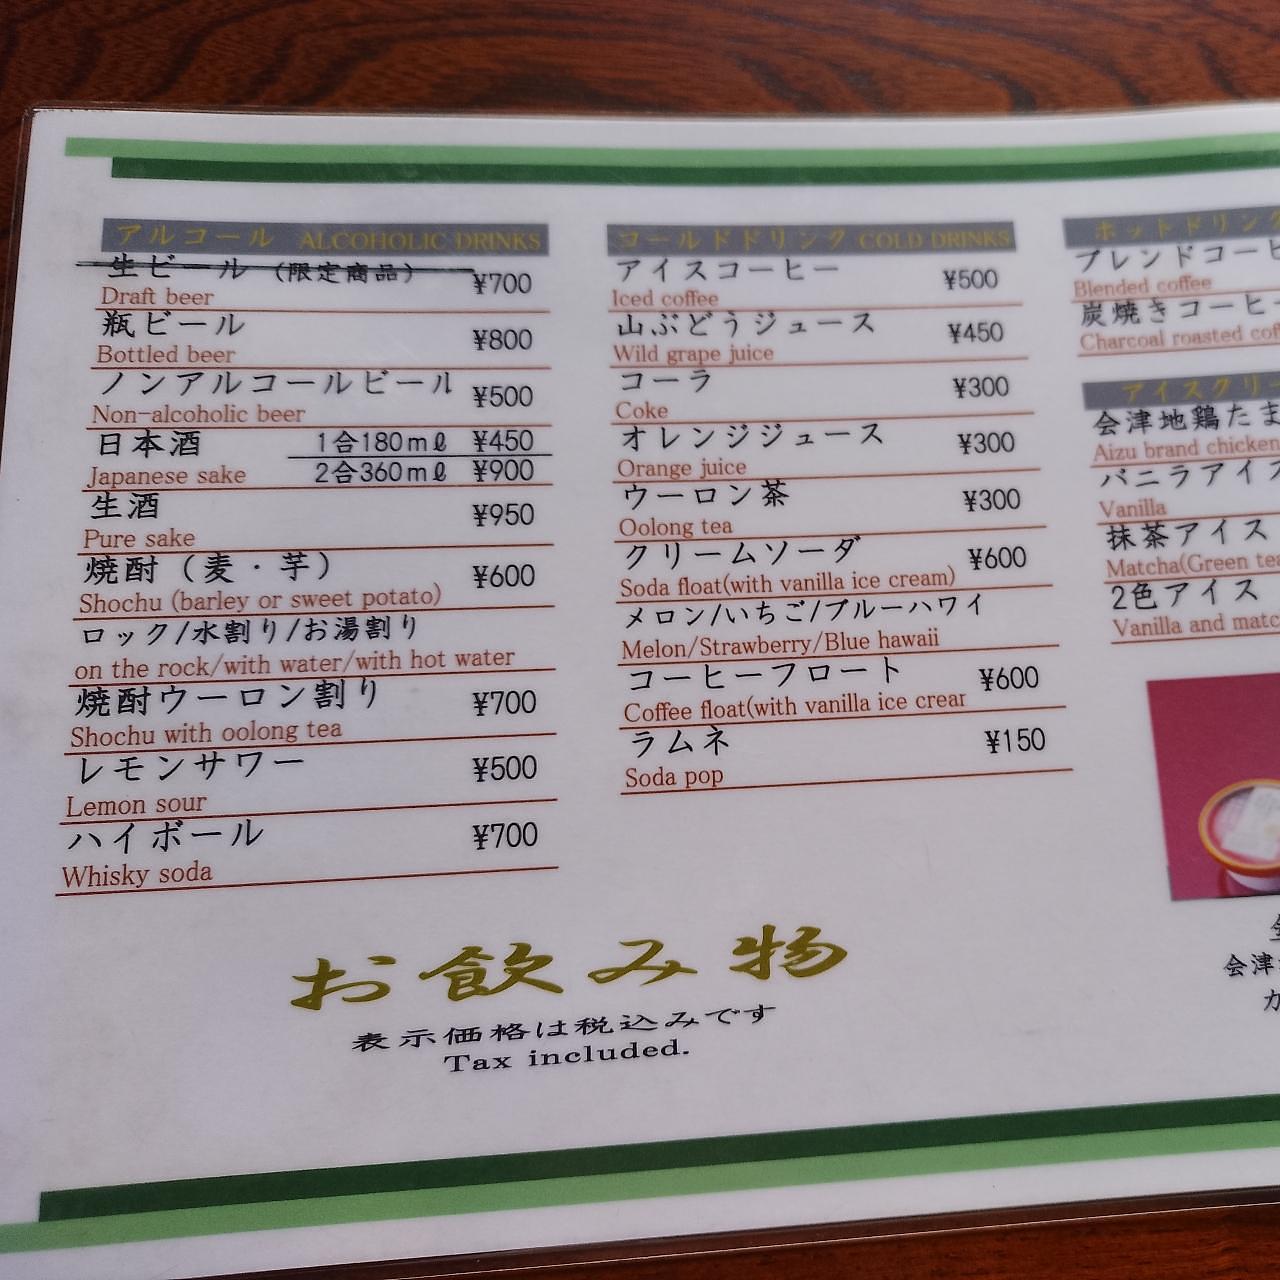 アルコール ALCOHOLIC DRINKS
生ビール (限定商品) ¥700
Draft beer
瓶ビール ¥800
Bottled beer
ノンアルコールビール ¥500
Non-alcoholic beer
日本酒 1合180mℓ ¥450
Japanese sake 2合360mℓ ¥900
生酒 ¥950
Pure sake
焼酎（麦・芋） ¥600
Shochu (barley or sweet potato)
ロック/水割り/お湯割り
on the rock/with water/with hot water
焼酎ウーロン割り ¥700
Shochu with oolong tea
レモンサワー ¥500
Lemon sour
ハイボール ¥700
Whisky soda
コールドドリンク COLD DRINKS
アイスコーヒー ¥500
Iced coffee
山ぶどうジュース ¥450
Wild grape juice
コーラ ¥300
Coke
オレンジジュース ¥300
Orange juice
ウーロン茶 ¥300
Oolong tea
クリームソーダ ¥600
Soda float(with vanilla ice cream)
メロン/いちご/ブルーハワイ
Melon/Strawberry/Blue hawaii
コーヒーフロート ¥600
Coffee float(with vanilla ice crear
ラムネ ¥150
Soda pop
ホットドリンク
ブレンドコーヒ
Blended coffee
炭焼きコーヒー
Charcoal roasted cof
アイスクリー
会津地鶏たま
Aizu brand chicken
バニラアイス
Vanilla
抹茶アイス
Matcha(Green tea
2色アイス
Vanilla and matc
会津
カ
お飲み物
表示価格は税込みです
Tax included.